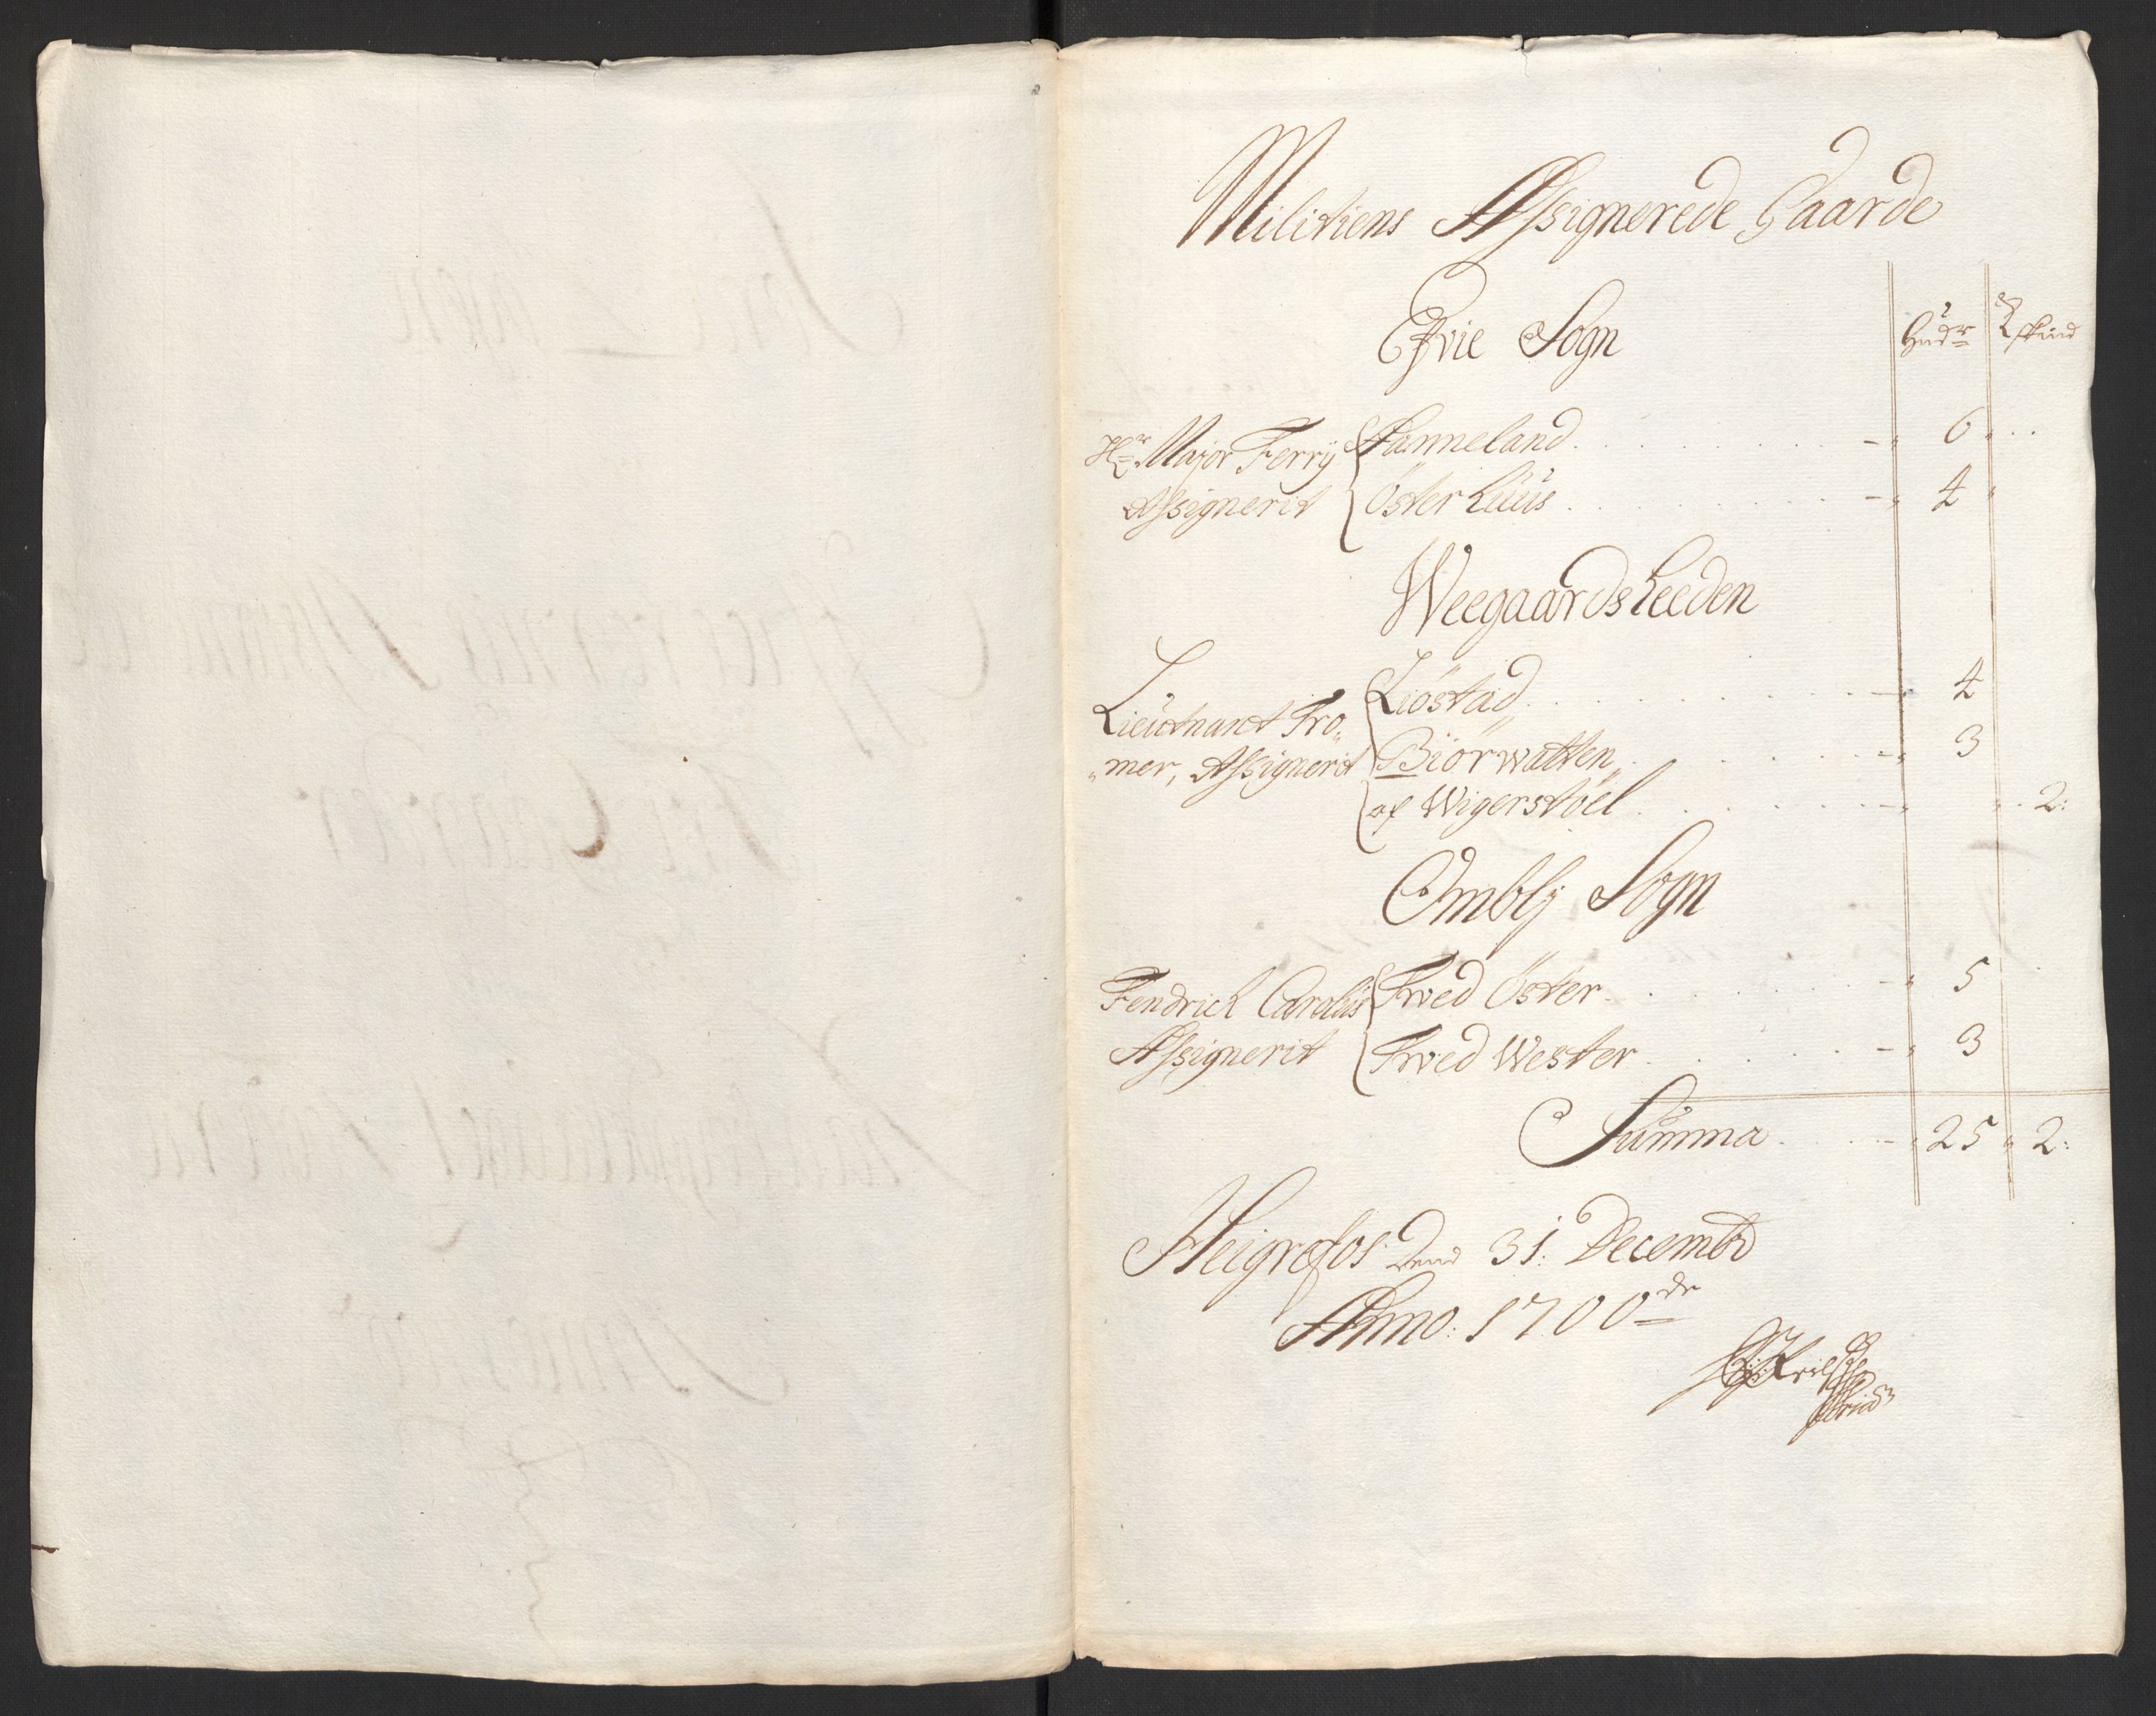 Militiens Assignerede Gaarde
Efvie Sogn
Hudr skind
Hr Major Ferrÿ Assignerit
Fanneland 6
Österhuus 4
Weegaardsheeden
Lieutnant Tro„
„mer, Assignerit
Liöstad 4
Biörwatten 3
af Wigerstöel 2:
Omblj Sogn
Fendrich Carolus Assignerit
Twed Öster 5
Twed Wester 3
Summa 25 2:
Heigrefos Dend 31: Decembr
Anno: 1700de